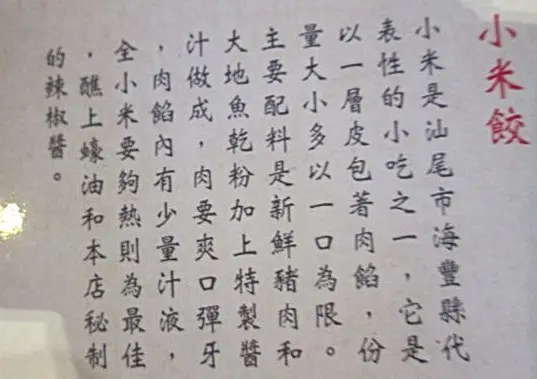 小米餃
小米是汕尾市海豐縣代
表性的小吃之一，它是
以一層皮包著肉餡，份
量大小多以一口為限。
主要配料是新鮮豬肉和
大地魚乾粉加上特製醬
汁做成，肉要爽口彈牙
，肉餡內有少量汁液，
全小米要夠熱則為最佳
，醮上蠔油和本店秘制
的辣椒醬。